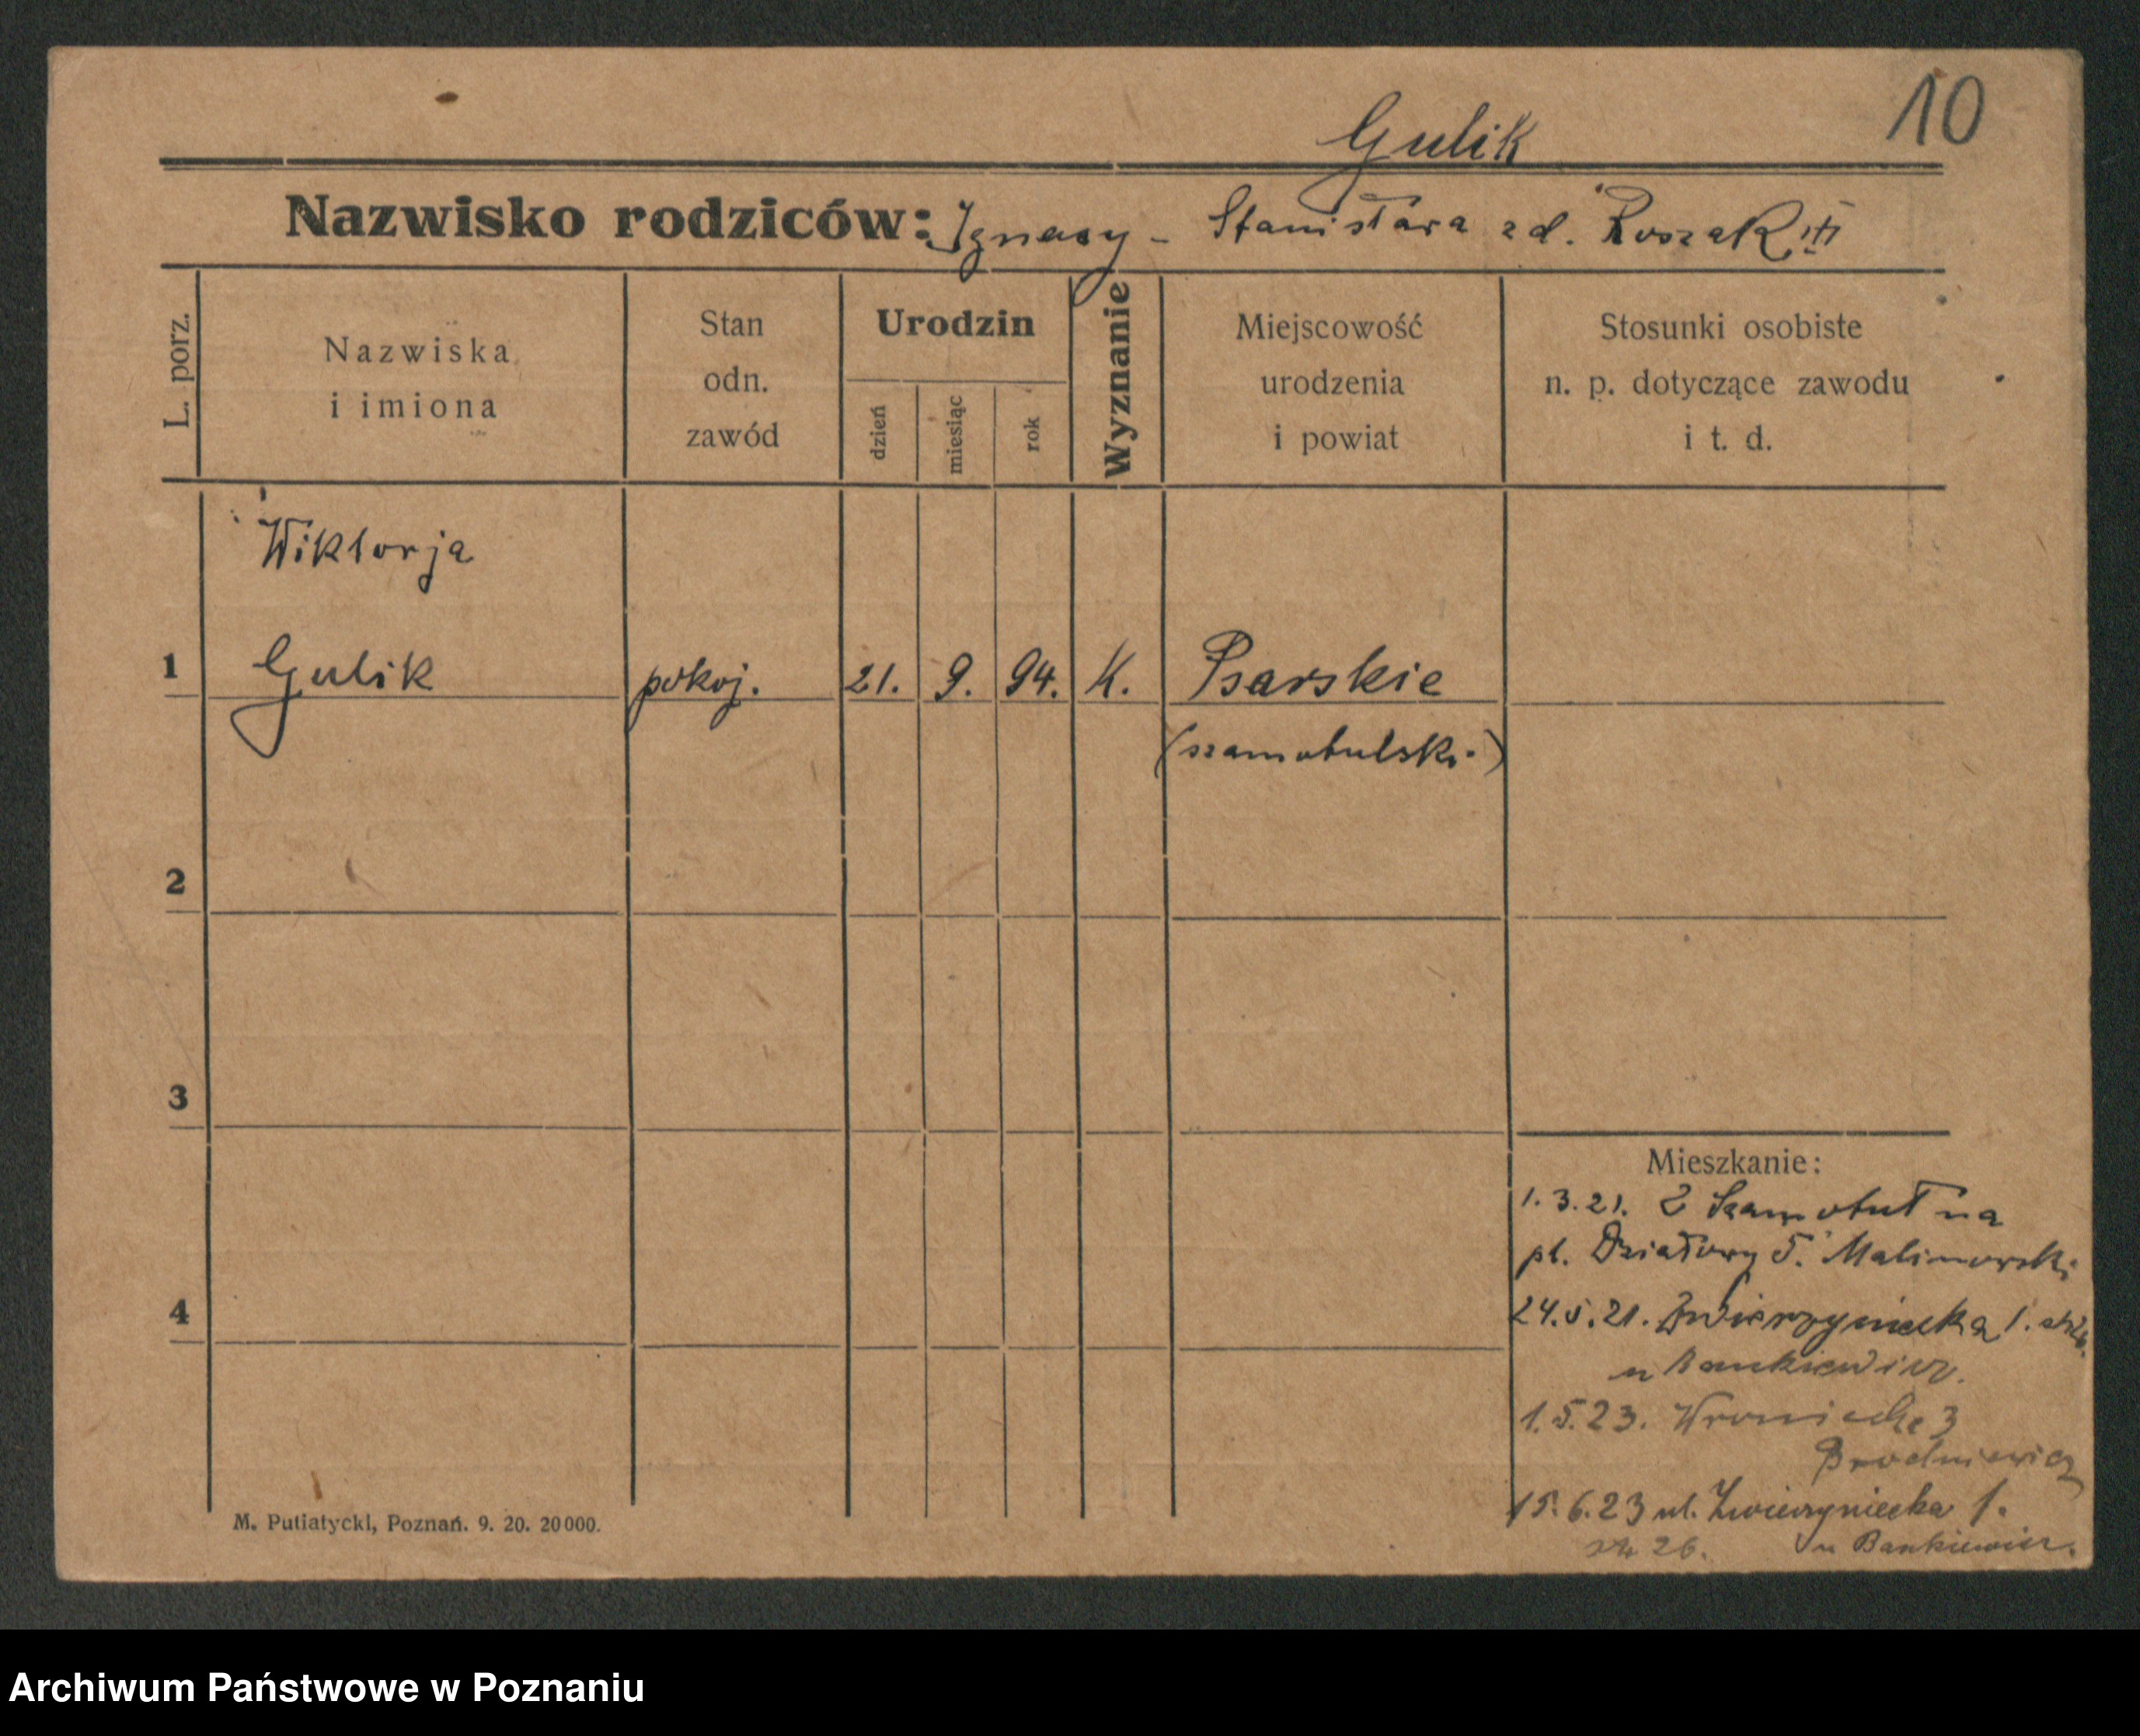 10
Gulik
Nazwisko rodziców: Ignacy - Stanisława zd. Roszak
L. porz.
Nazwiska
i imiona
Stan
odn.
zawód
Urodzin
dzień
miesiąc
rok
Wyznanie
Miejscowość
urodzenia
i powiat
Stosunki osobiste
n. p. dotyczące zawodu
i t. d.
Wiktorja
1 Gulik pokoj. 21. 9. 94. K. Psarskie
(szamotulski)
2
3
4
Mieszkanie:
1.3.21. Z Szamotuł na
pl. Działowy 5. Malinowski
24.5.21. Zwierzyniecka 1.
u Bankiewicz.
1.5.23. Wroniecka 3
Brodniewicz
15.6.23 ul. Zwierzyniecka 1.
26. u Bankiewicz.
M. Putiatycki, Poznań. 9. 20. 20000.
Archiwum Państwowe w Poznaniu